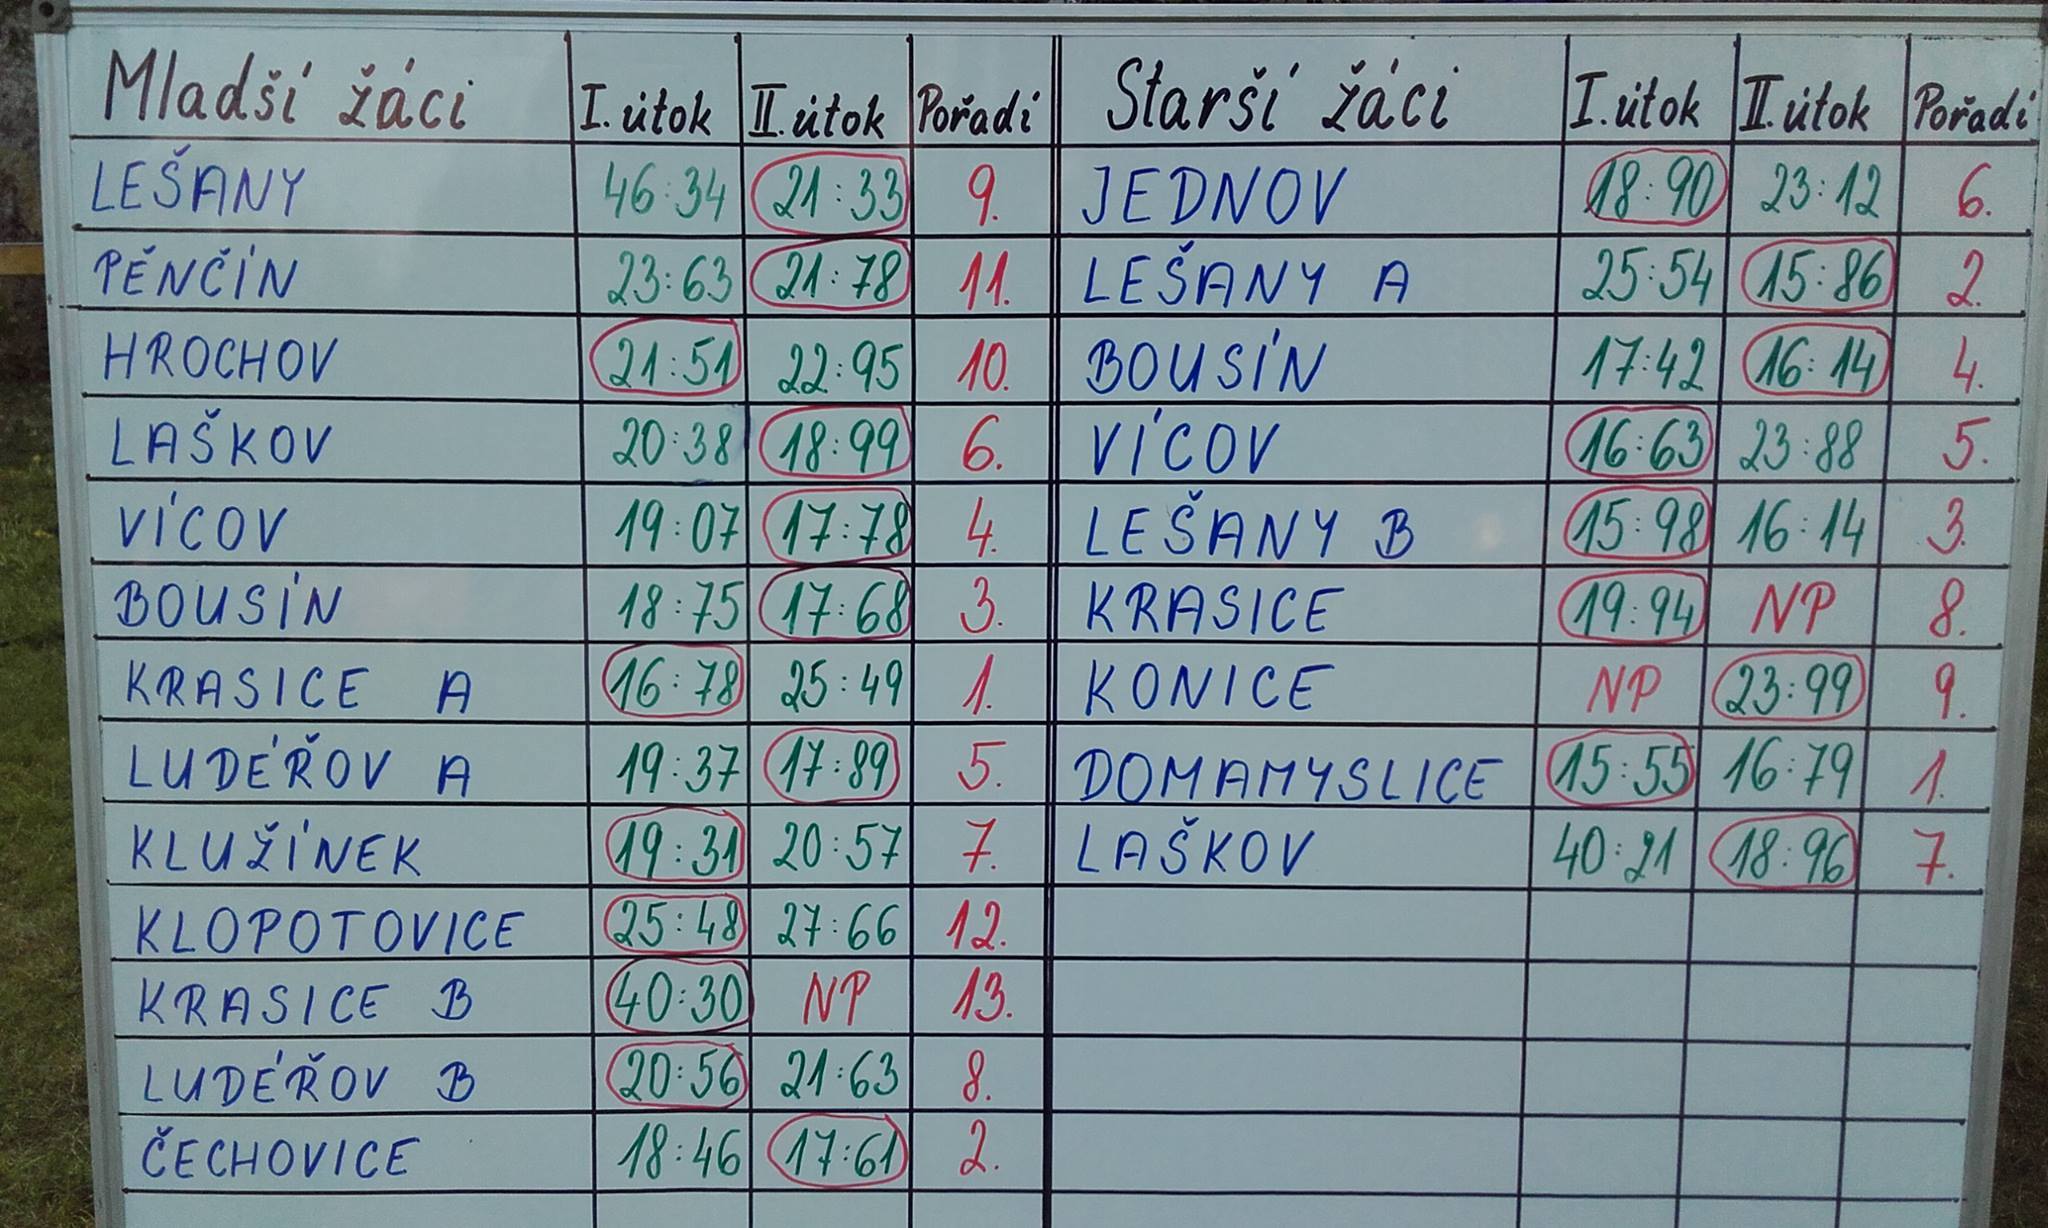 Mladší žáci I. útok II. útok Pořadí Starší žáci I. útok II. útok Pořadí
LEŠANY 46:34 21:33 9. JEDNOV 18:90 23:12 6.
PĚNČÍN 23:63 21:78 11. LEŠANY A 25:54 15:86 2.
HROCHOV 21:51 22:95 10. BOUSÍN 17:42 16:14 4.
LAŠKOV 20:38 18:99 6. VÍCOV 16:63 23:88 5.
VÍCOV 19:07 17:78 4. LEŠANY B 15:98 16:14 3.
BOUSÍN 18:75 17:68 3. KRASICE 19:94 NP 8.
KRASICE A 16:78 25:49 1. KONICE NP 23:99 9.
LUDÉŘOV A 19:37 17:89 5. DOMAMYSLICE 15:55 16:79 1.
KLUŽÍNEK 19:31 20:57 7. LAŠKOV 40:21 18:96 7.
KLOPOTOVICE 25:48 27:66 12.
KRASICE B 40:30 NP 13.
LUDÉŘOV B 20:56 21:63 8.
ČECHOVICE 18:46 17:61 2.